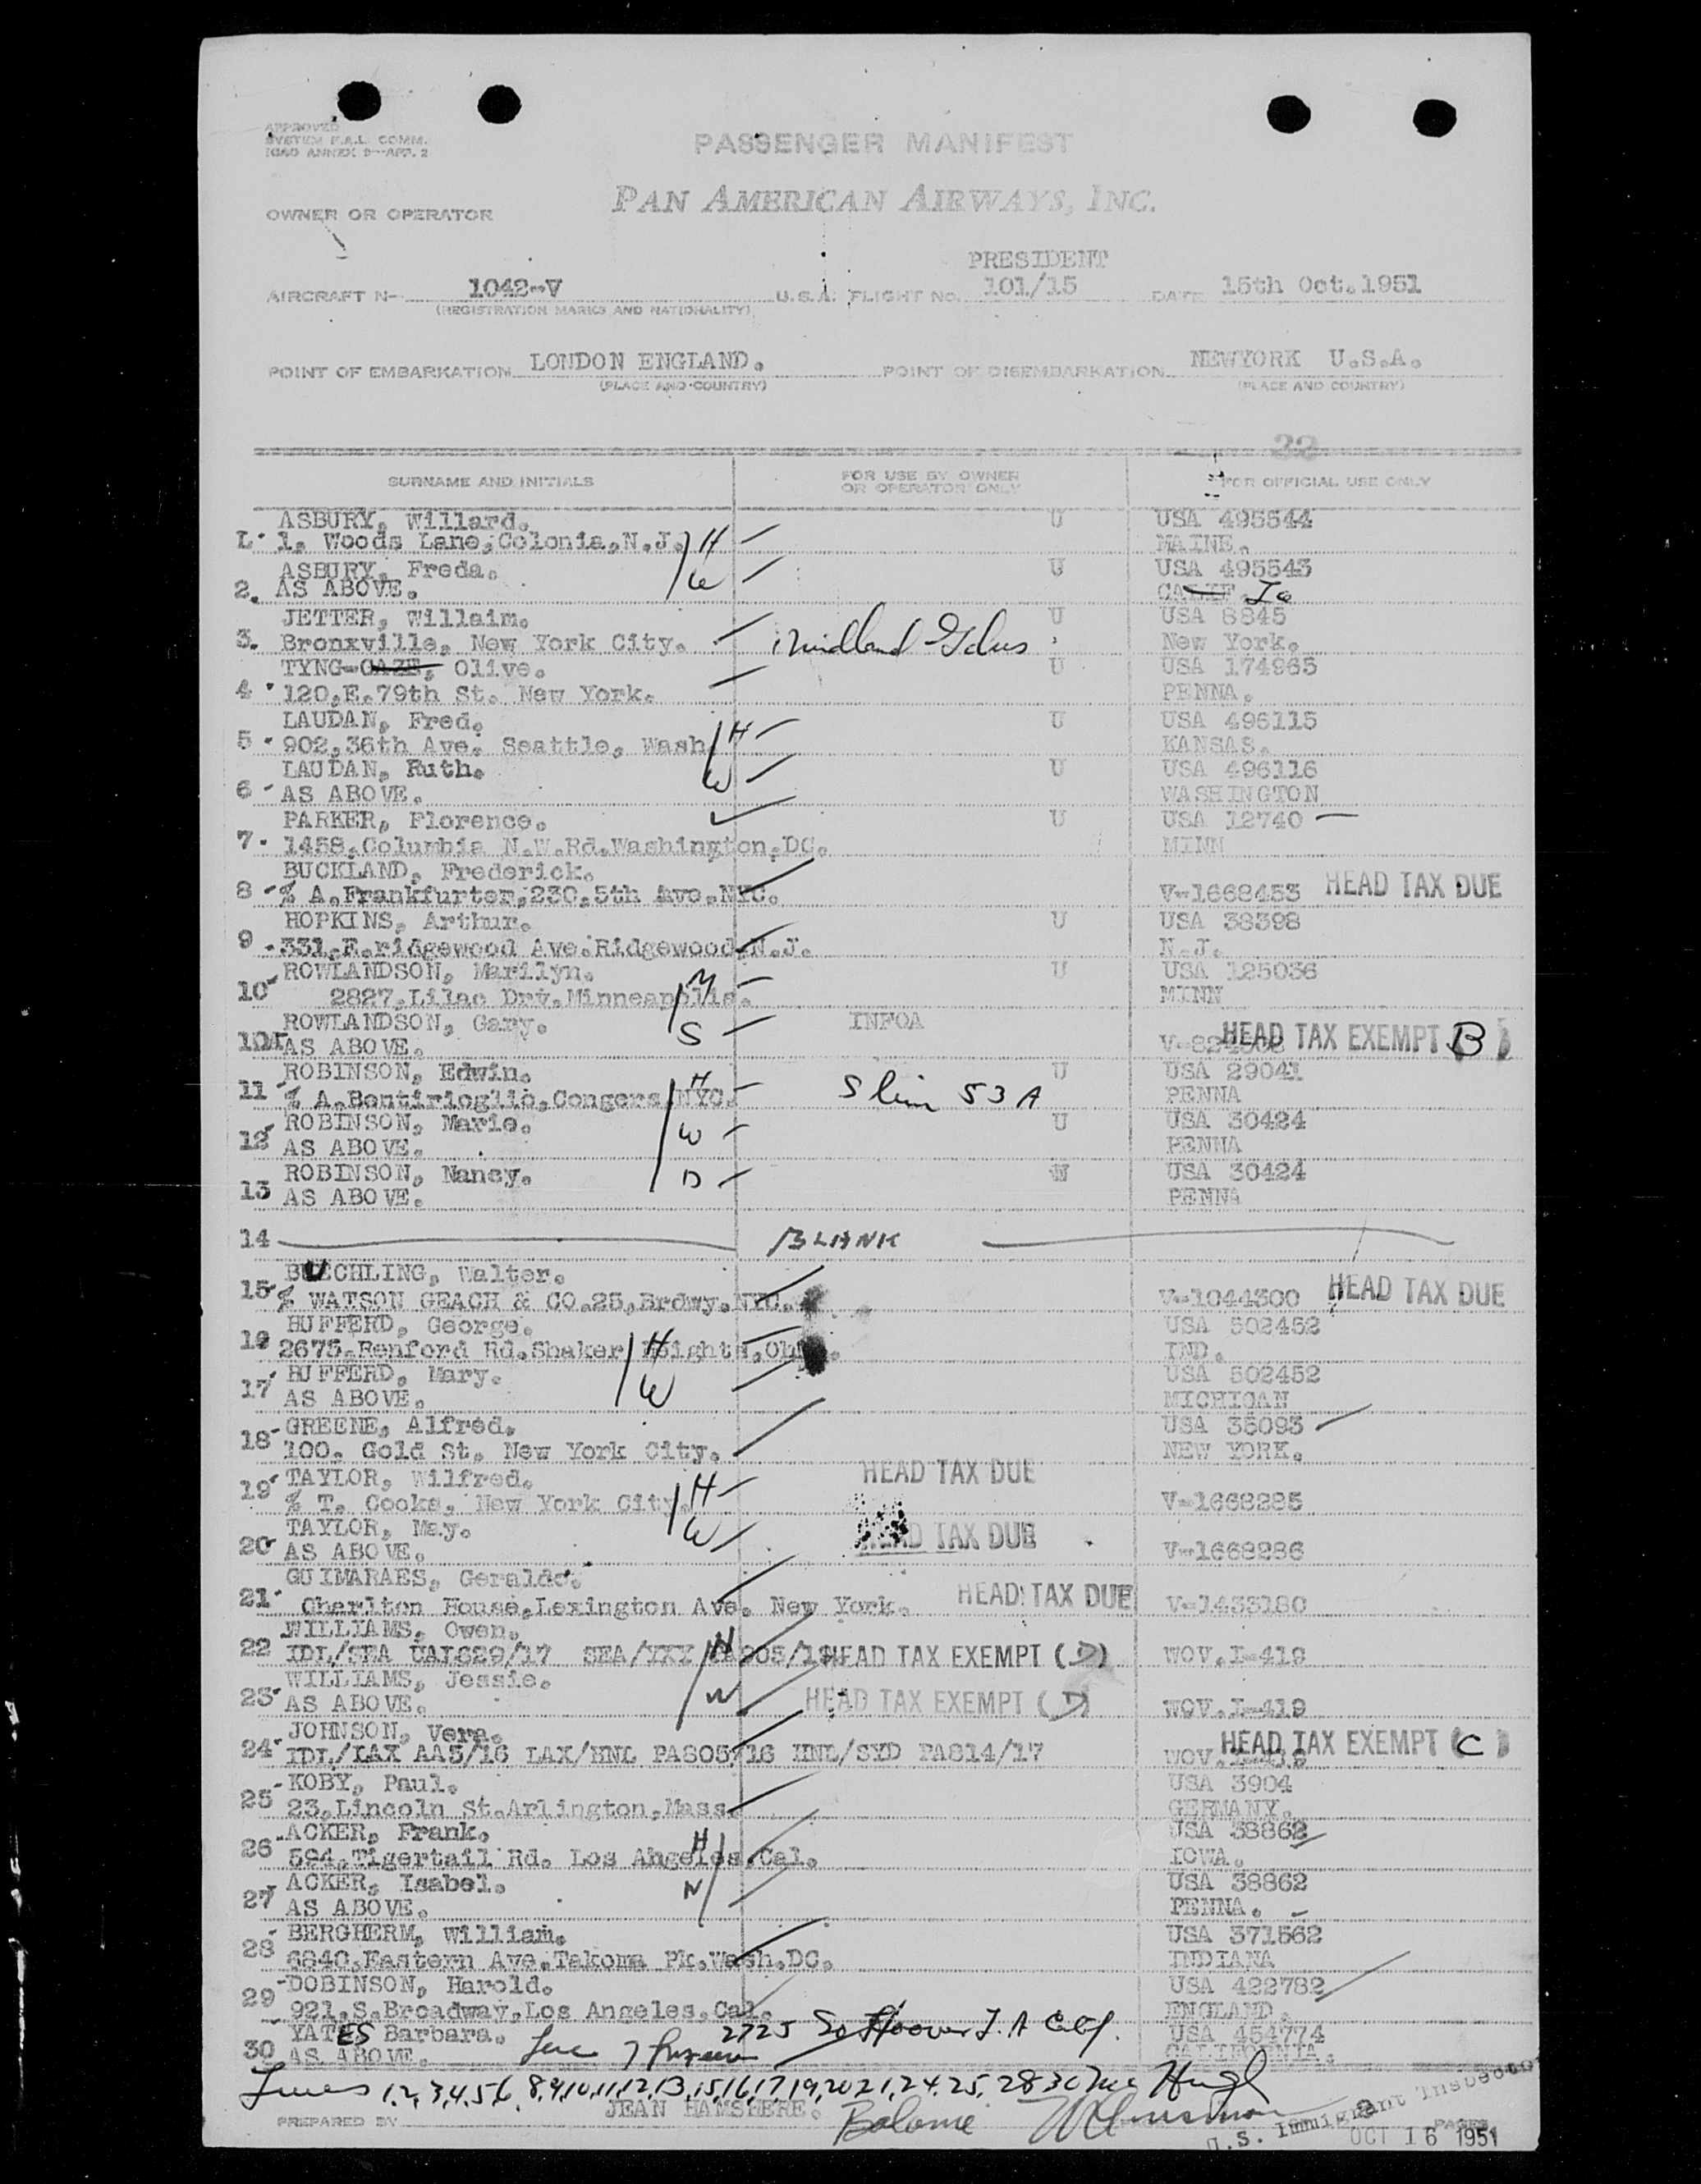 APPROVED
SYSTEM F.A.L. COMM.
ICAO ANNEX 9—APP. 2
PASSENGER MANIFEST
OWNER OR OPERATOR PAN AMERICAN AIRWAYS, INC.
PRESIDENT
AIRCRAFT N- 1042-V U.S.A. FLIGHT NO. 101/15 DATE 15th Oct.1951
(REGISTRATION MARKS AND NATIONALITY)
POINT OF EMBARKATION LONDON ENGLAND. POINT OF DISEMBARKATION NEWYORK U.S.A.
(PLACE AND COUNTRY) (PLACE AND COUNTRY)
22
SURNAME AND INITIALS FOR USE BY OWNER OR OPERATOR ONLY FOR OFFICIAL USE ONLY
ASBURY, Willard. U USA 495544
1. Woods Lane,Colonia,N.J. H MAINE.
ASBURY, Freda. U USA 495543
2. AS ABOVE. W CALIF Ia
JETTER, Willaim. U USA 6845
3. Bronxville, New York City. New York.
TYNG-GAZE, Olive. U USA 174965
4. 120,E.79th St. New York. PENNA.
LAUDAN, Fred. U USA 496115
5. 902,36th Ave. Seattle, Wash H KANSAS.
LAUDAN, Ruth. U USA 496116
6 AS ABOVE. W WASHINGTON
PARKER, Florence. U USA 12740
7. 1458,Columbia N.W.Rd.Washington,DC. MINN
BUCKLAND, Frederick.
8 % A.Frankfurter,230,5th Ave.NYC. V-1668453 HEAD TAX DUE
HOPKINS, Arthur. U USA 38398
9 331,E.ridgewood Ave.Ridgewood.N.J. N.J.
ROWLANDSON, Marilyn. U USA 125036
10 2827,Lilac Drv.Minneapolis. M MINN
ROWLANDSON, Gary. INFOA
AS ABOVE. S HEAD TAX EXEMPT (B)
ROBINSON, Edwin. U USA 29041
11 % A.Bentirioglio,Congers,NYC. H Slim 53 A PENNA
ROBINSON, Marie. U USA 30424
12 AS ABOVE. W PENNA
ROBINSON, Nancy. USA 30424
13 AS ABOVE. D PENNA
14 BLANK
BUECHLING, Walter.
15 % WATSON GEACH & CO.25,Brdwy.NYC. V-1044300 HEAD TAX DUE
HUFFERD, George. USA 502452
16 2675.Renford Rd.Shaker Heights,Ohio. H IND.
HUFFERD, Mary. USA 502452
17 AS ABOVE. W MICHIGAN
GREENE, Alfred. USA 35093
18 100. Gold St. New York City. NEW YORK.
TAYLOR, Wilfred. HEAD TAX DUE
19 % T. Cooks, New York City. H V-1668285
TAYLOR, May. HEAD TAX DUE
20 AS ABOVE. W V-1668286
GUIMARAES, Geraldo.
21 Charlton House,Lexington Ave. New York. HEAD TAX DUE V-1433180
WILLIAMS, Owen.
22 IDL/SEA UAL629/17 SEA/YXY HEAD TAX EXEMPT (D) WOV.I-419
WILLIAMS, Jessie.
23 AS ABOVE. W HEAD TAX EXEMPT (D) WOV.I-419
JOHNSON, Vera. HEAD TAX EXEMPT (C)
24 IDL/LAX AA5/16 LAX/HNL PA805/16 HNL/SYD PA814/17
KOBY, Paul. USA 3904
25 23,Lincoln St.Arlington,Mass. GERMANY.
ACKER, Frank. USA 38862
26 594,Tigertail Rd. Los Angeles,Cal. H IOWA.
ACKER, Isabel. USA 38862
27 AS ABOVE. W PENNA.
BERGHERM, William. USA 371562
28 6840,Eastern Ave.Takoma Pk.Wash.DC. INDIANA
DOBINSON, Harold. USA 422782
29 921.S.Broadway,Los Angeles.Cal. ENGLAND.
YATES Barbara. 2725 So Hoover L.A Calif. USA 454774
30 AS ABOVE. CALIFORNIA.
Lines 1,2,3,4,5,6,8,9,10,11,12,13,15,16,17,19,20,21,24,25,28,30
PREPARED BY JEAN HAMSHERE. PAGES
U.S. Immigrant Inspector
OCT 16 1951